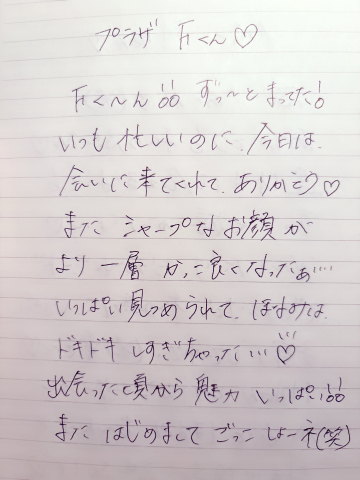 プラザ Fくん♡
Fく〜ん!! ずっ〜とまってた!
いつも忙しいのに、今日は、
会いに来てくれて、ありがとう♡
また シャープな お顔が
より一層 かっこ良くなったぁ…
いっぱい見つめられて、ほなみは、
ドキドキ しすぎちゃった…♡
出会った頃から 魅力 いっぱい!!
また はじめまして ごっこ しよーネ(笑)